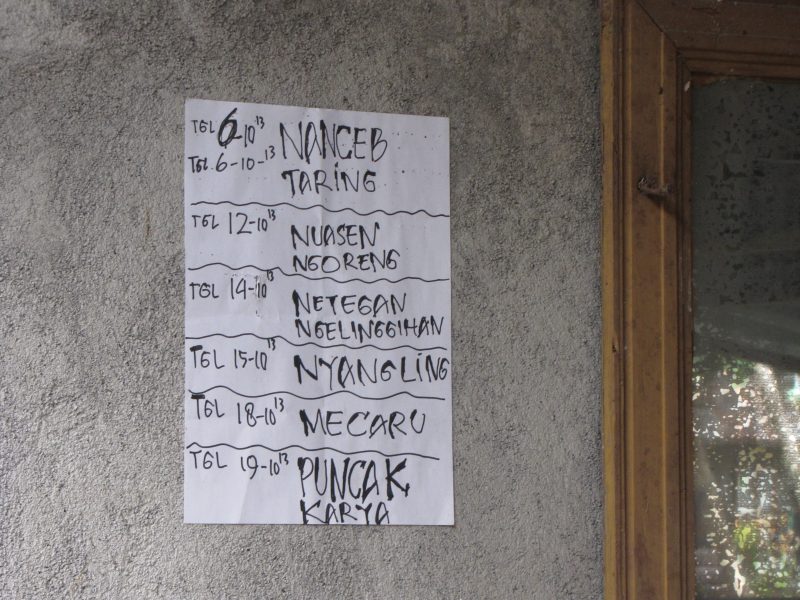 TGL 6-10 13 NANCEB
TGL. 6-10-13 TARING
TGL 12-10 13 NUASEN
NGORENG
TGL 14-10 13 NETEGAN
NGELINGGIHAN
TGL 15-10 13 NYANGLING
TGL 18-10 13 MECARU
TGL 19-10 13 PUNCAK
KARYA